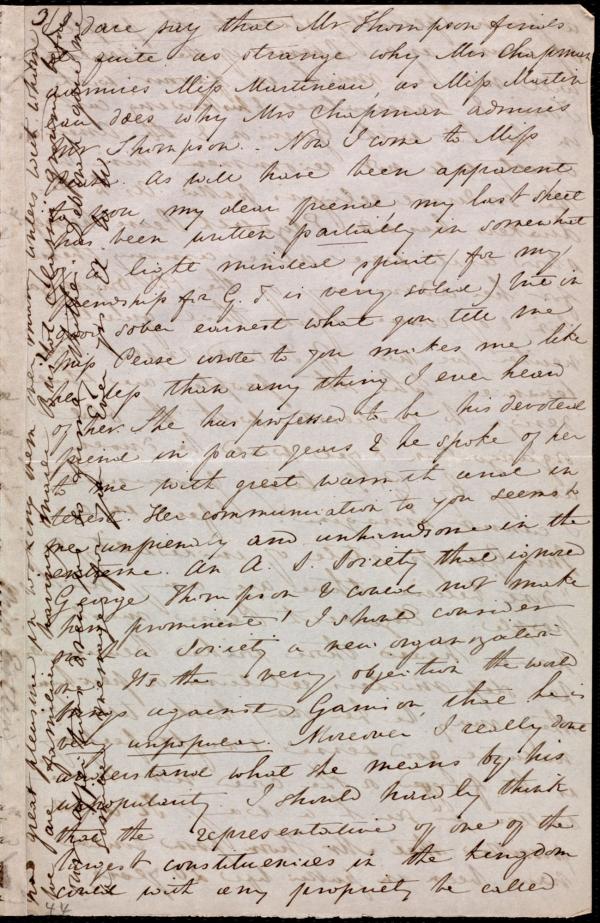 3/ dare say that Mr Thompson finds
it quite as strange why Mrs Chapman
admires Miss Martineau, as Miss Martin
eau does why Mrs Chapman admires
Mr Thompson. - Now I come to Miss
Pease. As will have been apparent
to you, my dear friend, my last sheet
has been written partially in somewhat
of a light minded spirit (for my
friendship for G. T. is very solid) but in
good sober earnest what you tell me
Miss Pease wrote to you makes me like
her less than any thing I ever heard
of her. She has professed to be his devoted
friend in past years & he spoke of her
to me with great warmth and in
terest. Her communication to you seems to
me unfriendly and unhandsome in the
extreme. An A. S. Society that ignored
George Thompson & could not make
him prominent! I should consider
such a Society a new organization
one. Its the very objection the world
brings against Garrison, that he is
very unpopular. Moreover I really dont
understand what she means by his
unpopularity. I should hardly think
that the representative of one of the
largest constituencies in the kingdom
could with any propriety be called
no great pleasure in working them over unless with whom
we are familiar having much
44